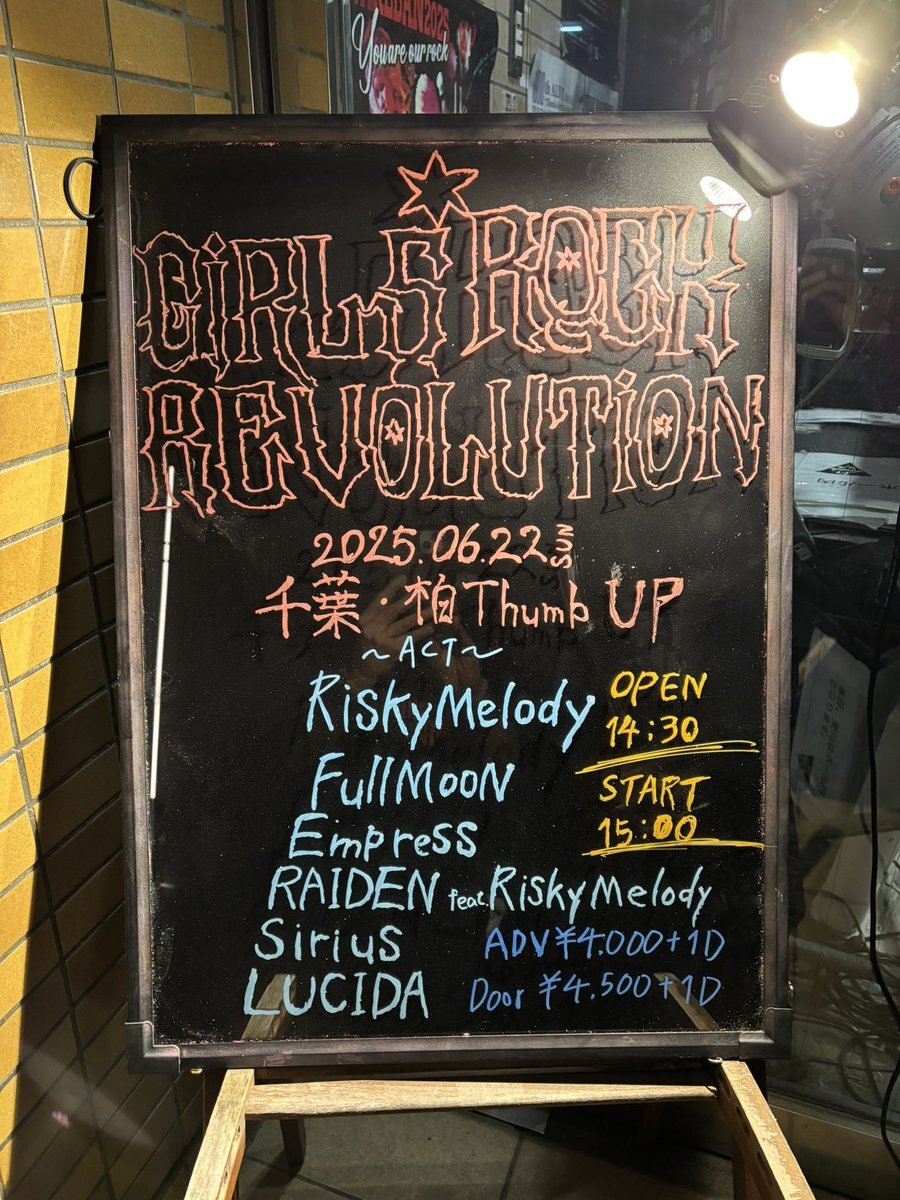 You are our rock
GiRLS ROCK
REVOLUTiON
2025.06.22 SUN
千葉・柏 Thumb UP
～ACT～
RiSkyMelody
OPEN
14:30
FullMooN
START
15:00
Empress
RAIDEN feat. RiSkyMelody
Sirius
ADV ¥4.000+1D
LUCIDA
Door ¥4.500+1D